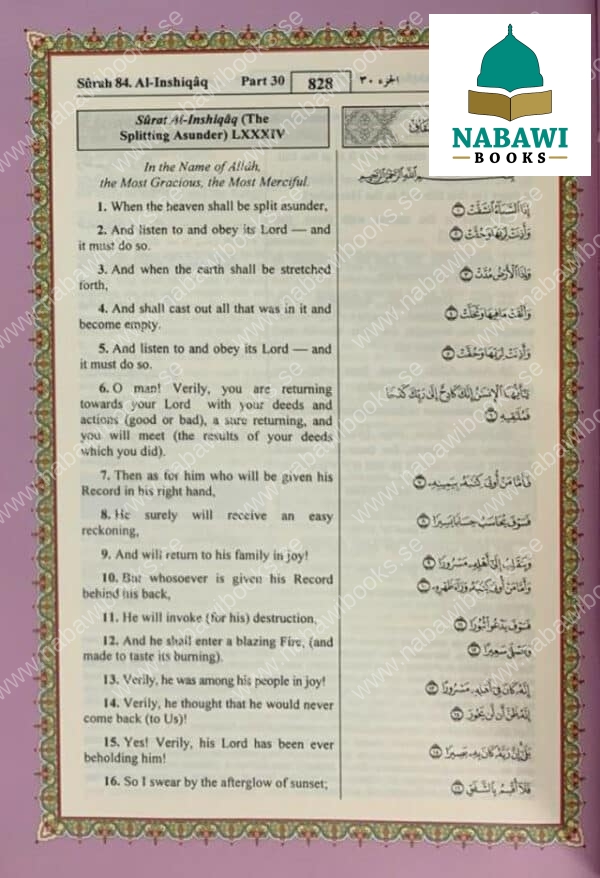 Sûrah 84. Al-Inshiqâq Part 30 828 الجزء ٣٠
NABAWI
BOOKS
Sûrat Al-Inshiqâq (The
Splitting Asunder) LXXXIV
In the Name of Allâh,
the Most Gracious, the Most Merciful.
1. When the heaven shall be split asunder,
2. And listen to and obey its Lord — and
it must do so.
3. And when the earth shall be stretched
forth,
4. And shall cast out all that was in it and
become empty.
5. And listen to and obey its Lord — and
it must do so.
6. O man! Verily, you are returning
towards your Lord with your deeds and
actions (good or bad), a sure returning, and
you will meet (the results of your deeds
which you did).
7. Then as for him who will be given his
Record in his right hand,
8. He surely will receive an easy
reckoning,
9. And will return to his family in joy!
10. But whosoever is given his Record
behind his back,
11. He will invoke (for his) destruction,
12. And he shall enter a blazing Fire, (and
made to taste its burning).
13. Verily, he was among his people in joy!
14. Verily, he thought that he would never
come back (to Us)!
15. Yes! Verily, his Lord has been ever
beholding him!
16. So I swear by the afterglow of sunset;
بِسْمِ اللَّهِ الرَّحْمَٰنِ الرَّحِيمِ
إِذَا ٱلسَّمَآءُ ٱنشَقَّتْ ١
وَأَذِنَتْ لِرَبِّهَا وَحُقَّتْ ٢
وَإِذَا ٱلْأَرْضُ مُدَّتْ ٣
وَأَلْقَتْ مَا فِيهَا وَتَخَلَّتْ ٤
وَأَذِنَتْ لِرَبِّهَا وَحُقَّتْ ٥
يَٰٓأَيُّهَا ٱلْإِنسَٰنُ إِنَّكَ كَادِحٌ إِلَىٰ رَبِّكَ كَدْحًا
فَمُلَٰقِيهِ ٦
فَأَمَّا مَنْ أُوتِىَ كِتَٰبَهُۥ بِيَمِينِهِۦ ٧
فَسَوْفَ يُحَاسَبُ حِسَابًا يَسِيرًا ٨
وَيَنقَلِبُ إِلَىٰٓ أَهْلِهِۦ مَسْرُورًا ٩
وَأَمَّا مَنْ أُوتِىَ كِتَٰبَهُۥ وَرَآءَ ظَهْرِهِۦ ١٠
فَسَوْفَ يَدْعُوا۟ ثُبُورًا ١١
وَيَصْلَىٰ سَعِيرًا ١٢
إِنَّهُۥ كَانَ فِىٓ أَهْلِهِۦ مَسْرُورًا ١٣
إِنَّهُۥ ظَنَّ أَن لَّن يَحُورَ ١٤
بَلَىٰٓ إِنَّ رَبَّهُۥ كَانَ بِهِۦ بَصِيرًا ١٥
فَلَآ أُقْسِمُ بِٱلشَّفَقِ ١٦
www.nabawibooks.se